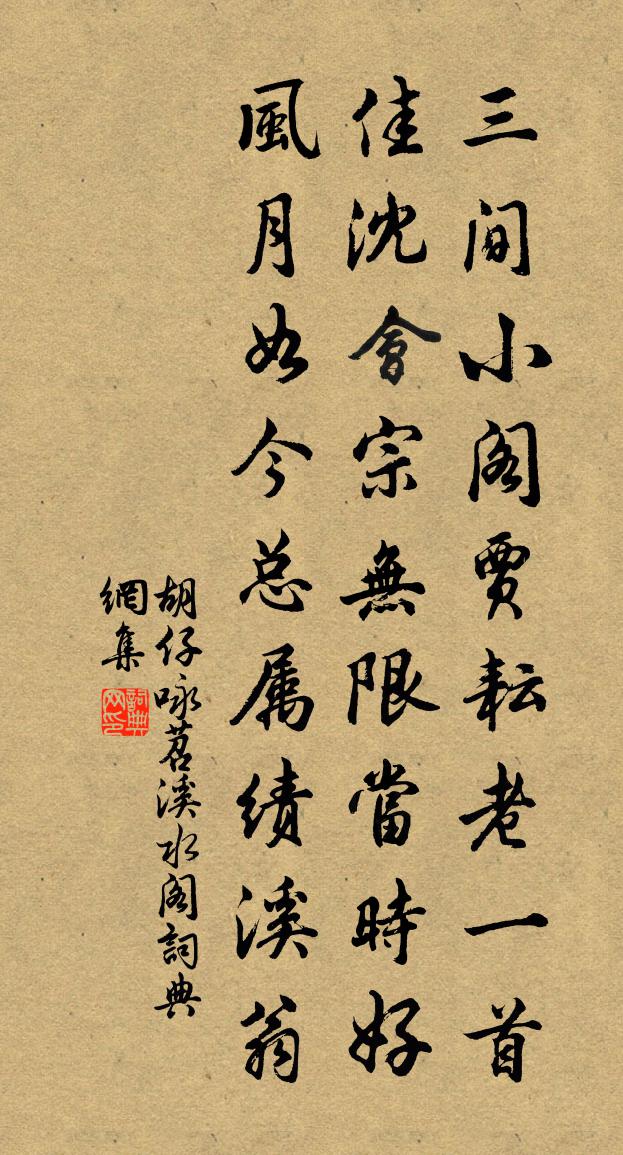 三間小阁賈耘老一首
佳沈會宗無限當時好
風月如今总属绩溪翁
胡仔咏苕溪水阁詞典
網集
詞典
网印